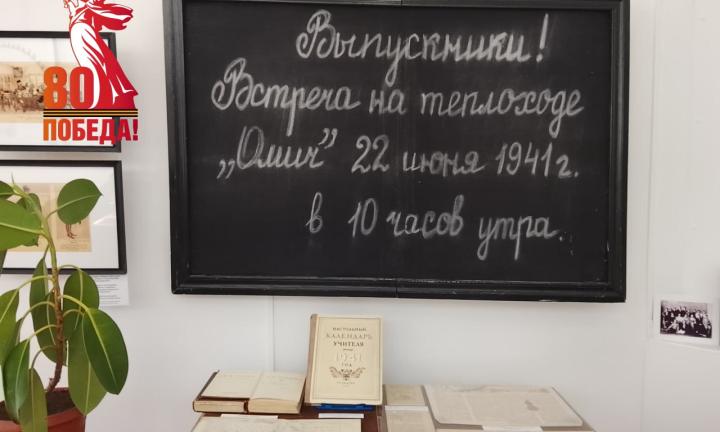 80
ПОБЕДА!
Выпускники!
Встреча на теплоходе
„Омич” 22 июня 1941 г.
в 10 часов утра.
НАСТОЛЬНЫЙ
КАЛЕНДАРЬ
УЧИТЕЛЯ
1941
ГОД